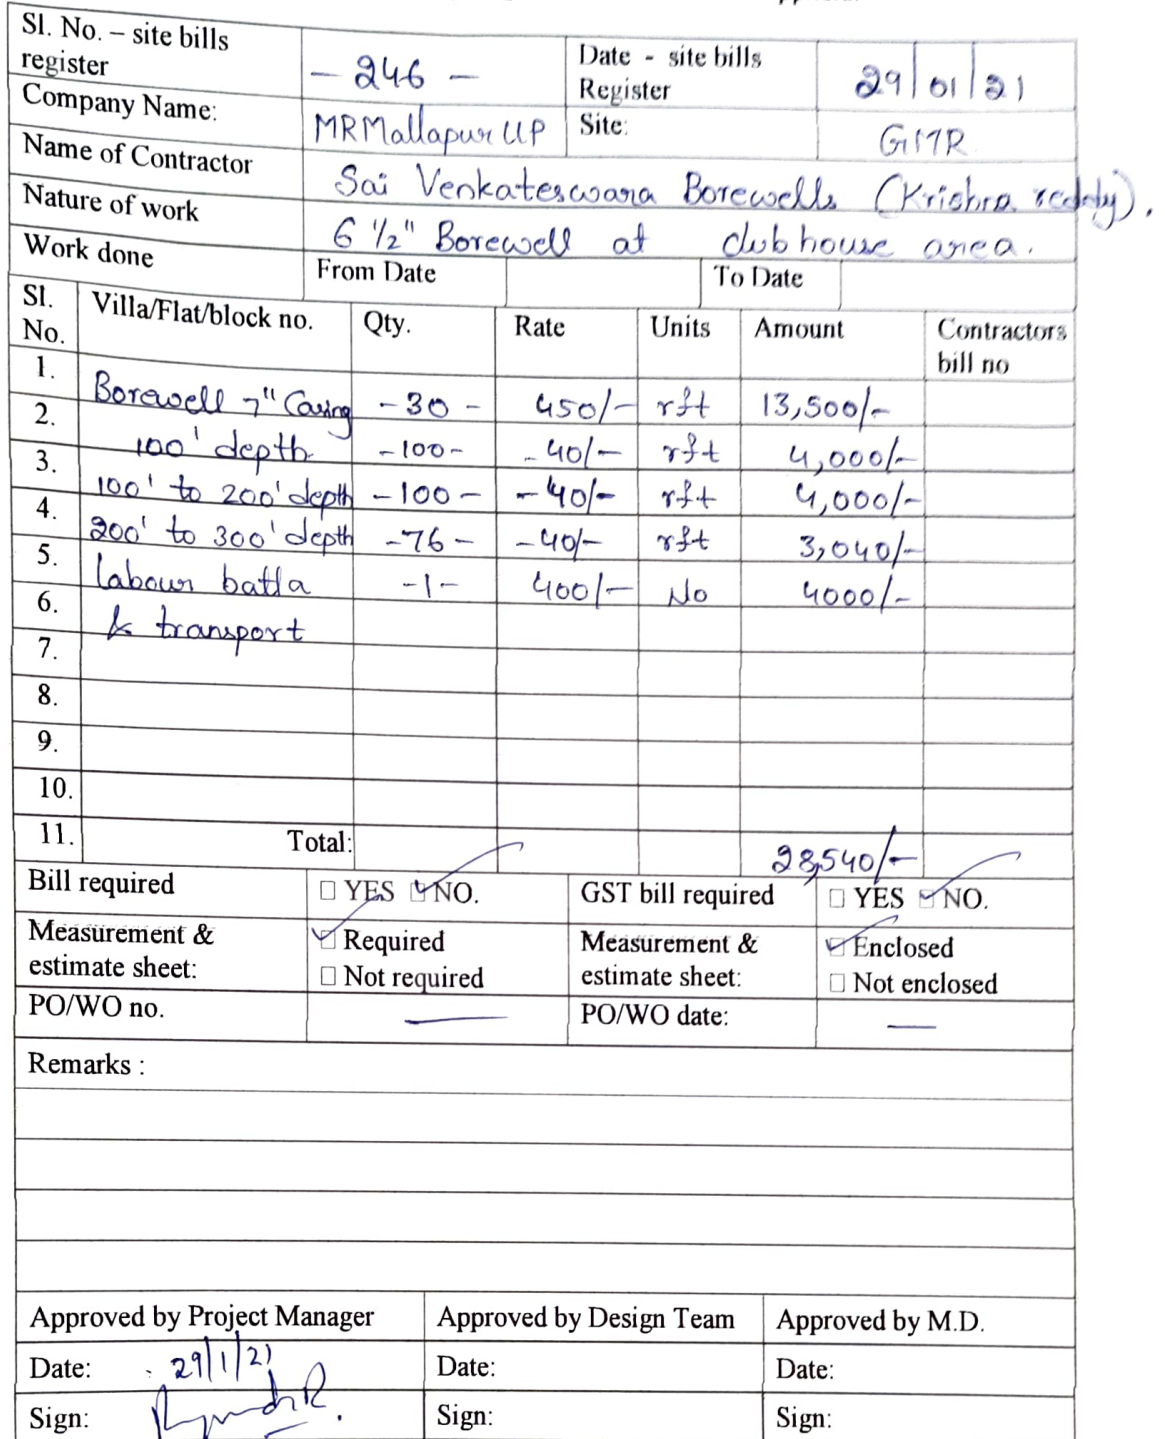 Sl. No. – site bills register - 246 - Date - site bills Register 29/01/21
Company Name: MRMallapur UP Site: GMR
Name of Contractor Sai Venkateswara Borewells (Krishna reddy).
Nature of work 6 1/2" Borewell at club house area.
Work done From Date To Date
Sl. No. Villa/Flat/block no. Qty. Rate Units Amount Contractors bill no
1. Borewell 7" Casing - 30 - 450/- rft 13,500/-
2. 100' depth -100- - 40/- rft 4,000/-
3. 100' to 200' depth -100- - 40/- rft 4,000/-
4. 200' to 300' depth -76- - 40/- rft 3,040/-
5. labour batta -1- 400/- No 4000/-
6. & transport
7.
8.
9.
10.
11. Total: 28,540/-
Bill required YES NO. GST bill required YES NO.
Measurement & estimate sheet: Required Not required Measurement & estimate sheet: Enclosed Not enclosed
PO/WO no. — PO/WO date: —
Remarks :
Approved by Project Manager Approved by Design Team Approved by M.D.
Date: 29/1/21 Date: Date:
Sign: Sign: Sign: